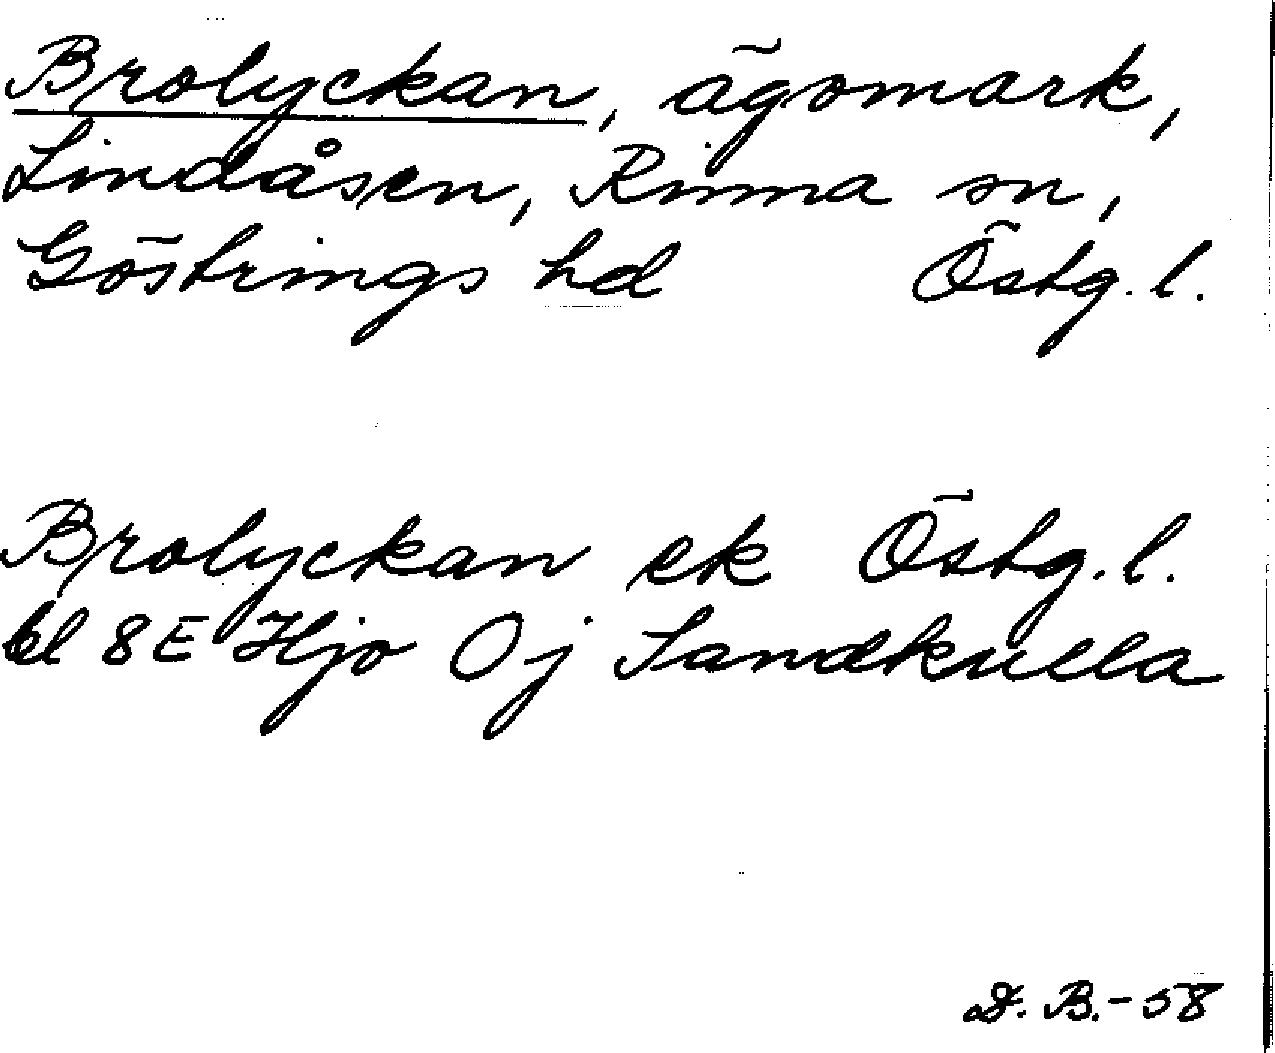 Brolyckan, ägomark,
Lindåsen, Rinna sn,
Göstrings hd Östg. l.
Brolyckan ek Östg. l.
bl 8E Hjo Oj Sandkulla
D. B. - 58